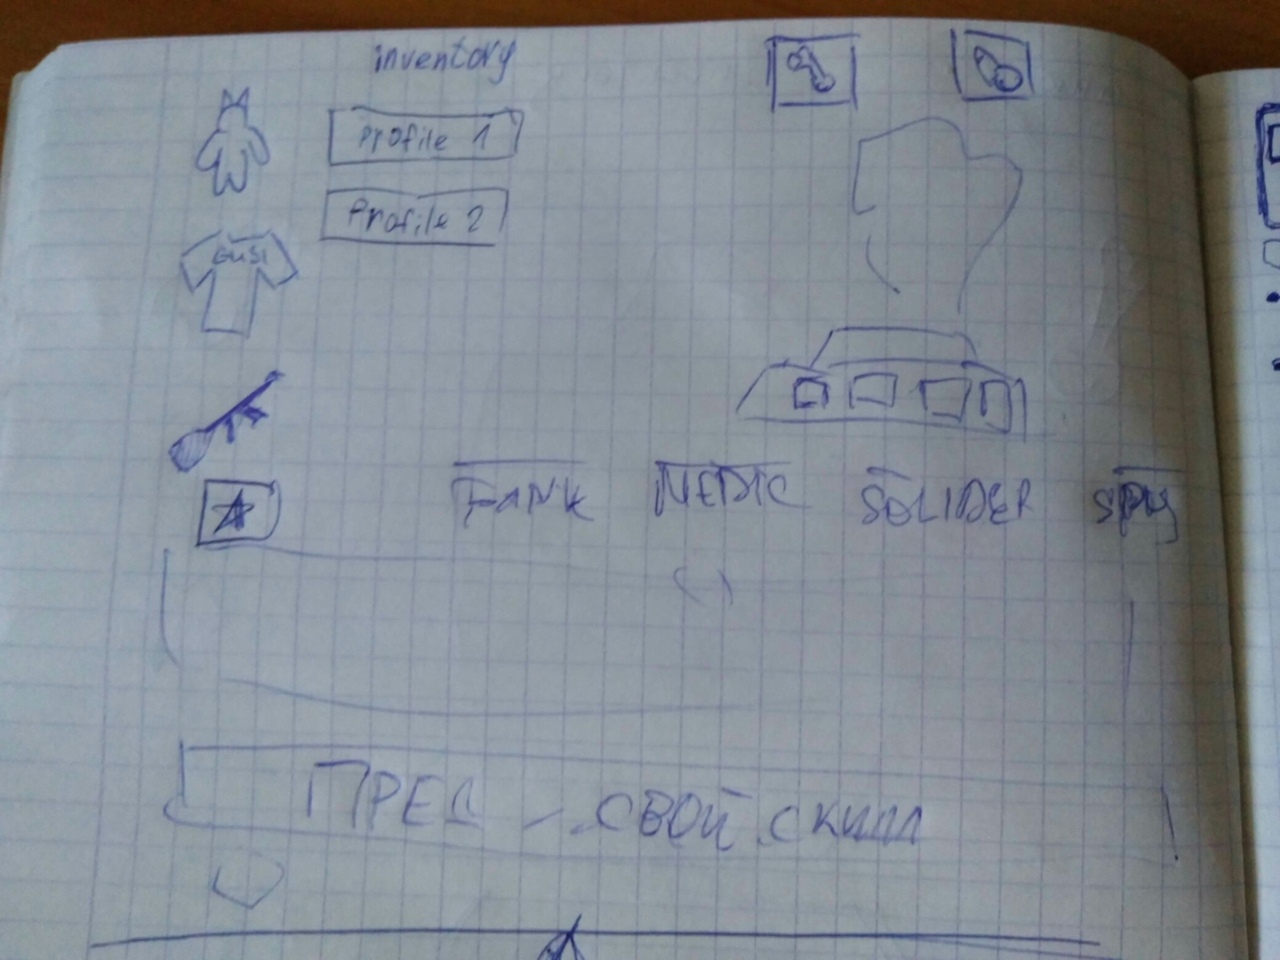 inventory
Profile 1
Profile 2
GUSI
TANK MEDIC SOLIDER SPY
ПРЕД - СВОЙ СКИЛЛ